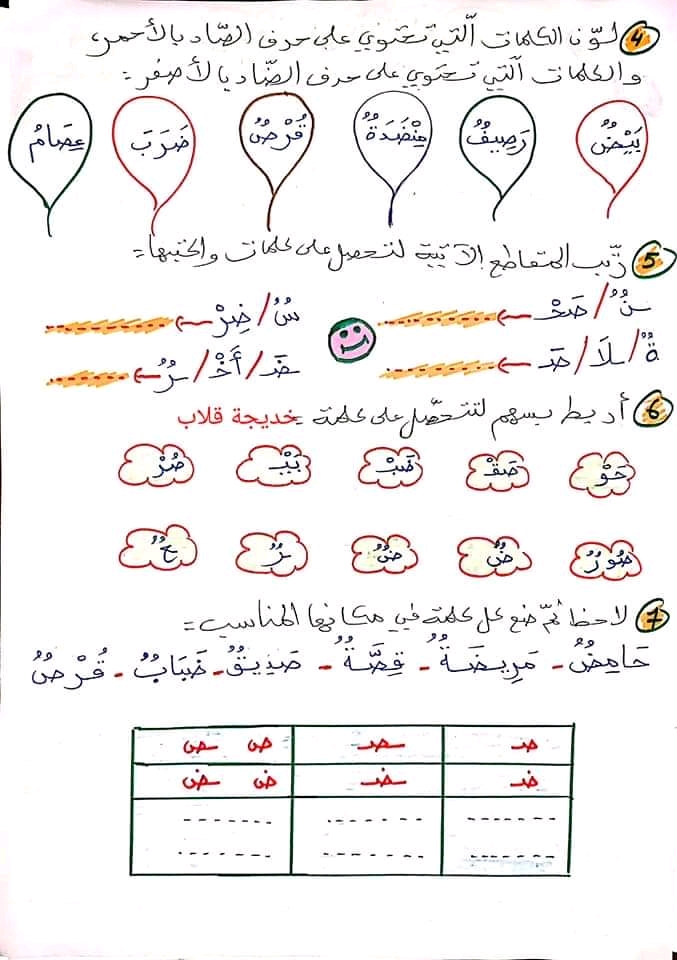 4 لوّن الكلمات الّتي تحتوي على حرف الصّاد بالأحمر،
والكلمات الّتي تحتوي على حرف الضّاد بالأصفر:
بَيْضٌ رَصِيفٌ مِنْضَدَةٌ قُرْصٌ ضَرَبَ عِصَامُ
5 رتّب المقاطع الآتية لتحصل على كلمات واكتبها:
نٌ / صَحْ سُ / ضِرْ
ةٌ / لَا / صَ ضَـ / أَخْ / رُ
6 أربط بسهم لتتحصّل على كلمة: خديجة قلاب
حَوْ صَقْـ ضَبْـ بَيْـ صُرْ
صُورٌ ضٌ ضٌ رٌ حٌ
7 لاحظ ثمّ ضع كل كلمة في مكانها المناسب:
حَامِضٌ - مَرِيضَةٌ - قِصَّةٌ - صَدِيقٌ - ضَبَابٌ - قُرْصٌ
صـ ـصـ ص ـص
ضـ ـضـ ض ـض